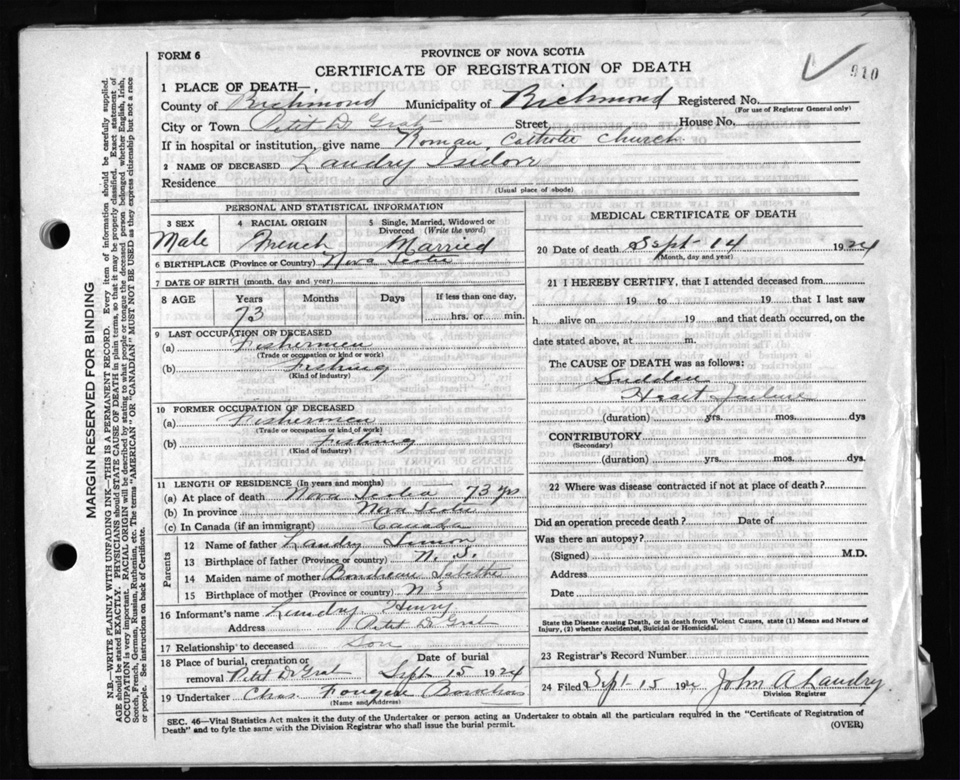 FORM 6
PROVINCE OF NOVA SCOTIA
CERTIFICATE OF REGISTRATION OF DEATH
910
1 PLACE OF DEATH—,
County of Richmond Municipality of Richmond Registered No.
(For use of Registrar General only)
City or Town Petit D Grat Street, House No.
If in hospital or institution, give name Roman Catholic Church
2 NAME OF DECEASED Landry Isidore
Residence
(Usual place of abode)
PERSONAL AND STATISTICAL INFORMATION
3 SEX 4 RACIAL ORIGIN 5 Single, Married, Widowed or Divorced (Write the word)
Male French Married
6 BIRTHPLACE (Province or Country) Nova Scotia
7 DATE OF BIRTH (month, day and year)
8 AGE Years Months Days If less than one day,
73 hrs. or min.
9 LAST OCCUPATION OF DECEASED
(a) Fishermen
(Trade or occupation or kind or work)
(b) Fishing
(Kind of industry)
10 FORMER OCCUPATION OF DECEASED
(a) Fishermen
(Trade or occupation or kind of work)
(b) Fishing
(Kind of industry)
11 LENGTH OF RESIDENCE (In years and months)
(a) At place of death Nova Scotia 73 yrs
(b) In province Nova Scotia
(c) In Canada (if an immigrant) Canada
Parents
12 Name of father Landry Simon
13 Birthplace of father (Province or country) N. S.
14 Maiden name of mother Boudreau
15 Birthplace of mother (Province or country) N S
16 Informant's name Landry Henry
Address Petit D Grat
17 Relationship to deceased Son
18 Place of burial, cremation or removal Petit D Grat Date of burial Sept 15 1924
19 Undertaker Chas. Fougere
(Name and Address)
MEDICAL CERTIFICATE OF DEATH
20 Date of death Sept 14 1924
(Month, day and year)
21 I HEREBY CERTIFY, that I attended deceased from
19 to 19 that I last saw
h alive on 19 and that death occurred, on the
date stated above, at m.
The CAUSE OF DEATH was as follows:
Sudden
Heart Failure
(duration) yrs. mos. dys
CONTRIBUTORY
(Secondary)
(duration) yrs. mos. dys.
22 Where was disease contracted if not at place of death?
Did an operation precede death? Date of
Was there an autopsy?
(Signed) M.D.
Address
Date
State the Disease causing Death, or in death from Violent Causes, state (1) Means and Nature of Injury, (2) whether Accidental, Suicidal or Homicidal.
23 Registrar's Record Number
24 Filed Sept 15 1924 John A Landry
Division Registrar
SEC. 46—Vital Statistics Act makes it the duty of the Undertaker or person acting as Undertaker to obtain all the particulars required in the "Certificate of Registration of
Death" and to fyle the same with the Division Registrar who shall issue the burial permit.
(OVER)
MARGIN RESERVED FOR BINDING
N.B.—WRITE PLAINLY WITH UNFADING INK—THIS IS A PERMANENT RECORD. Every item of information should be carefully supplied.
AGE should be stated EXACTLY. PHYSICIANS should STATE CAUSE OF DEATH in plain terms, so that it may be properly classified. Exact statement of
OCCUPATION is very important. RACIAL ORIGIN will be described by stating to what people or tongue the deceased person belonged whether English, Irish,
Scotch, French, German, Russian, Ruthenian, etc. The terms "AMERICAN" OR "CANADIAN" MUST NOT BE USED as they express citizenship but not a race
or people. See instructions on back of Certificate.